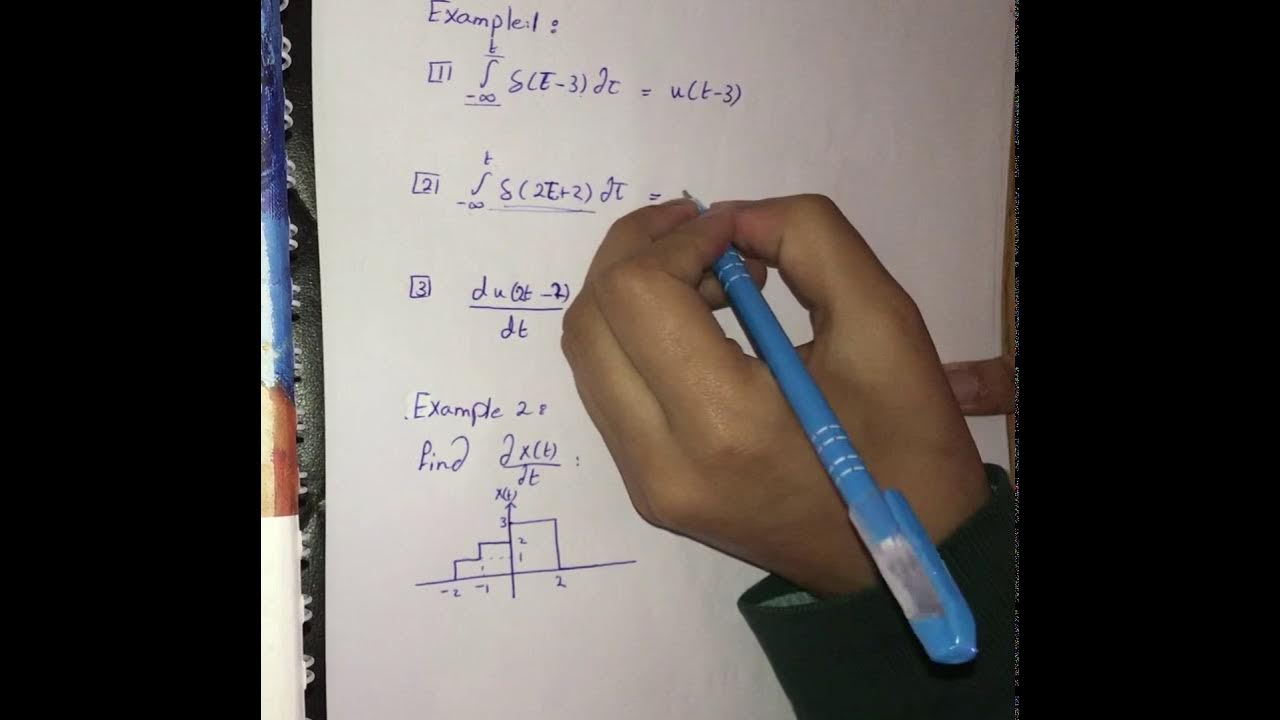 Example:1 :
[1] ∫_{-∞}^{t} δ(τ-3) ∂τ = u(t-3)
[2] ∫_{-∞}^{t} δ(2τ+2) ∂τ =
[3] du(2t-2)/dt
Example 2:
Find ∂x(t)/∂t :
x(t)
3
2
1
-2 -1 2